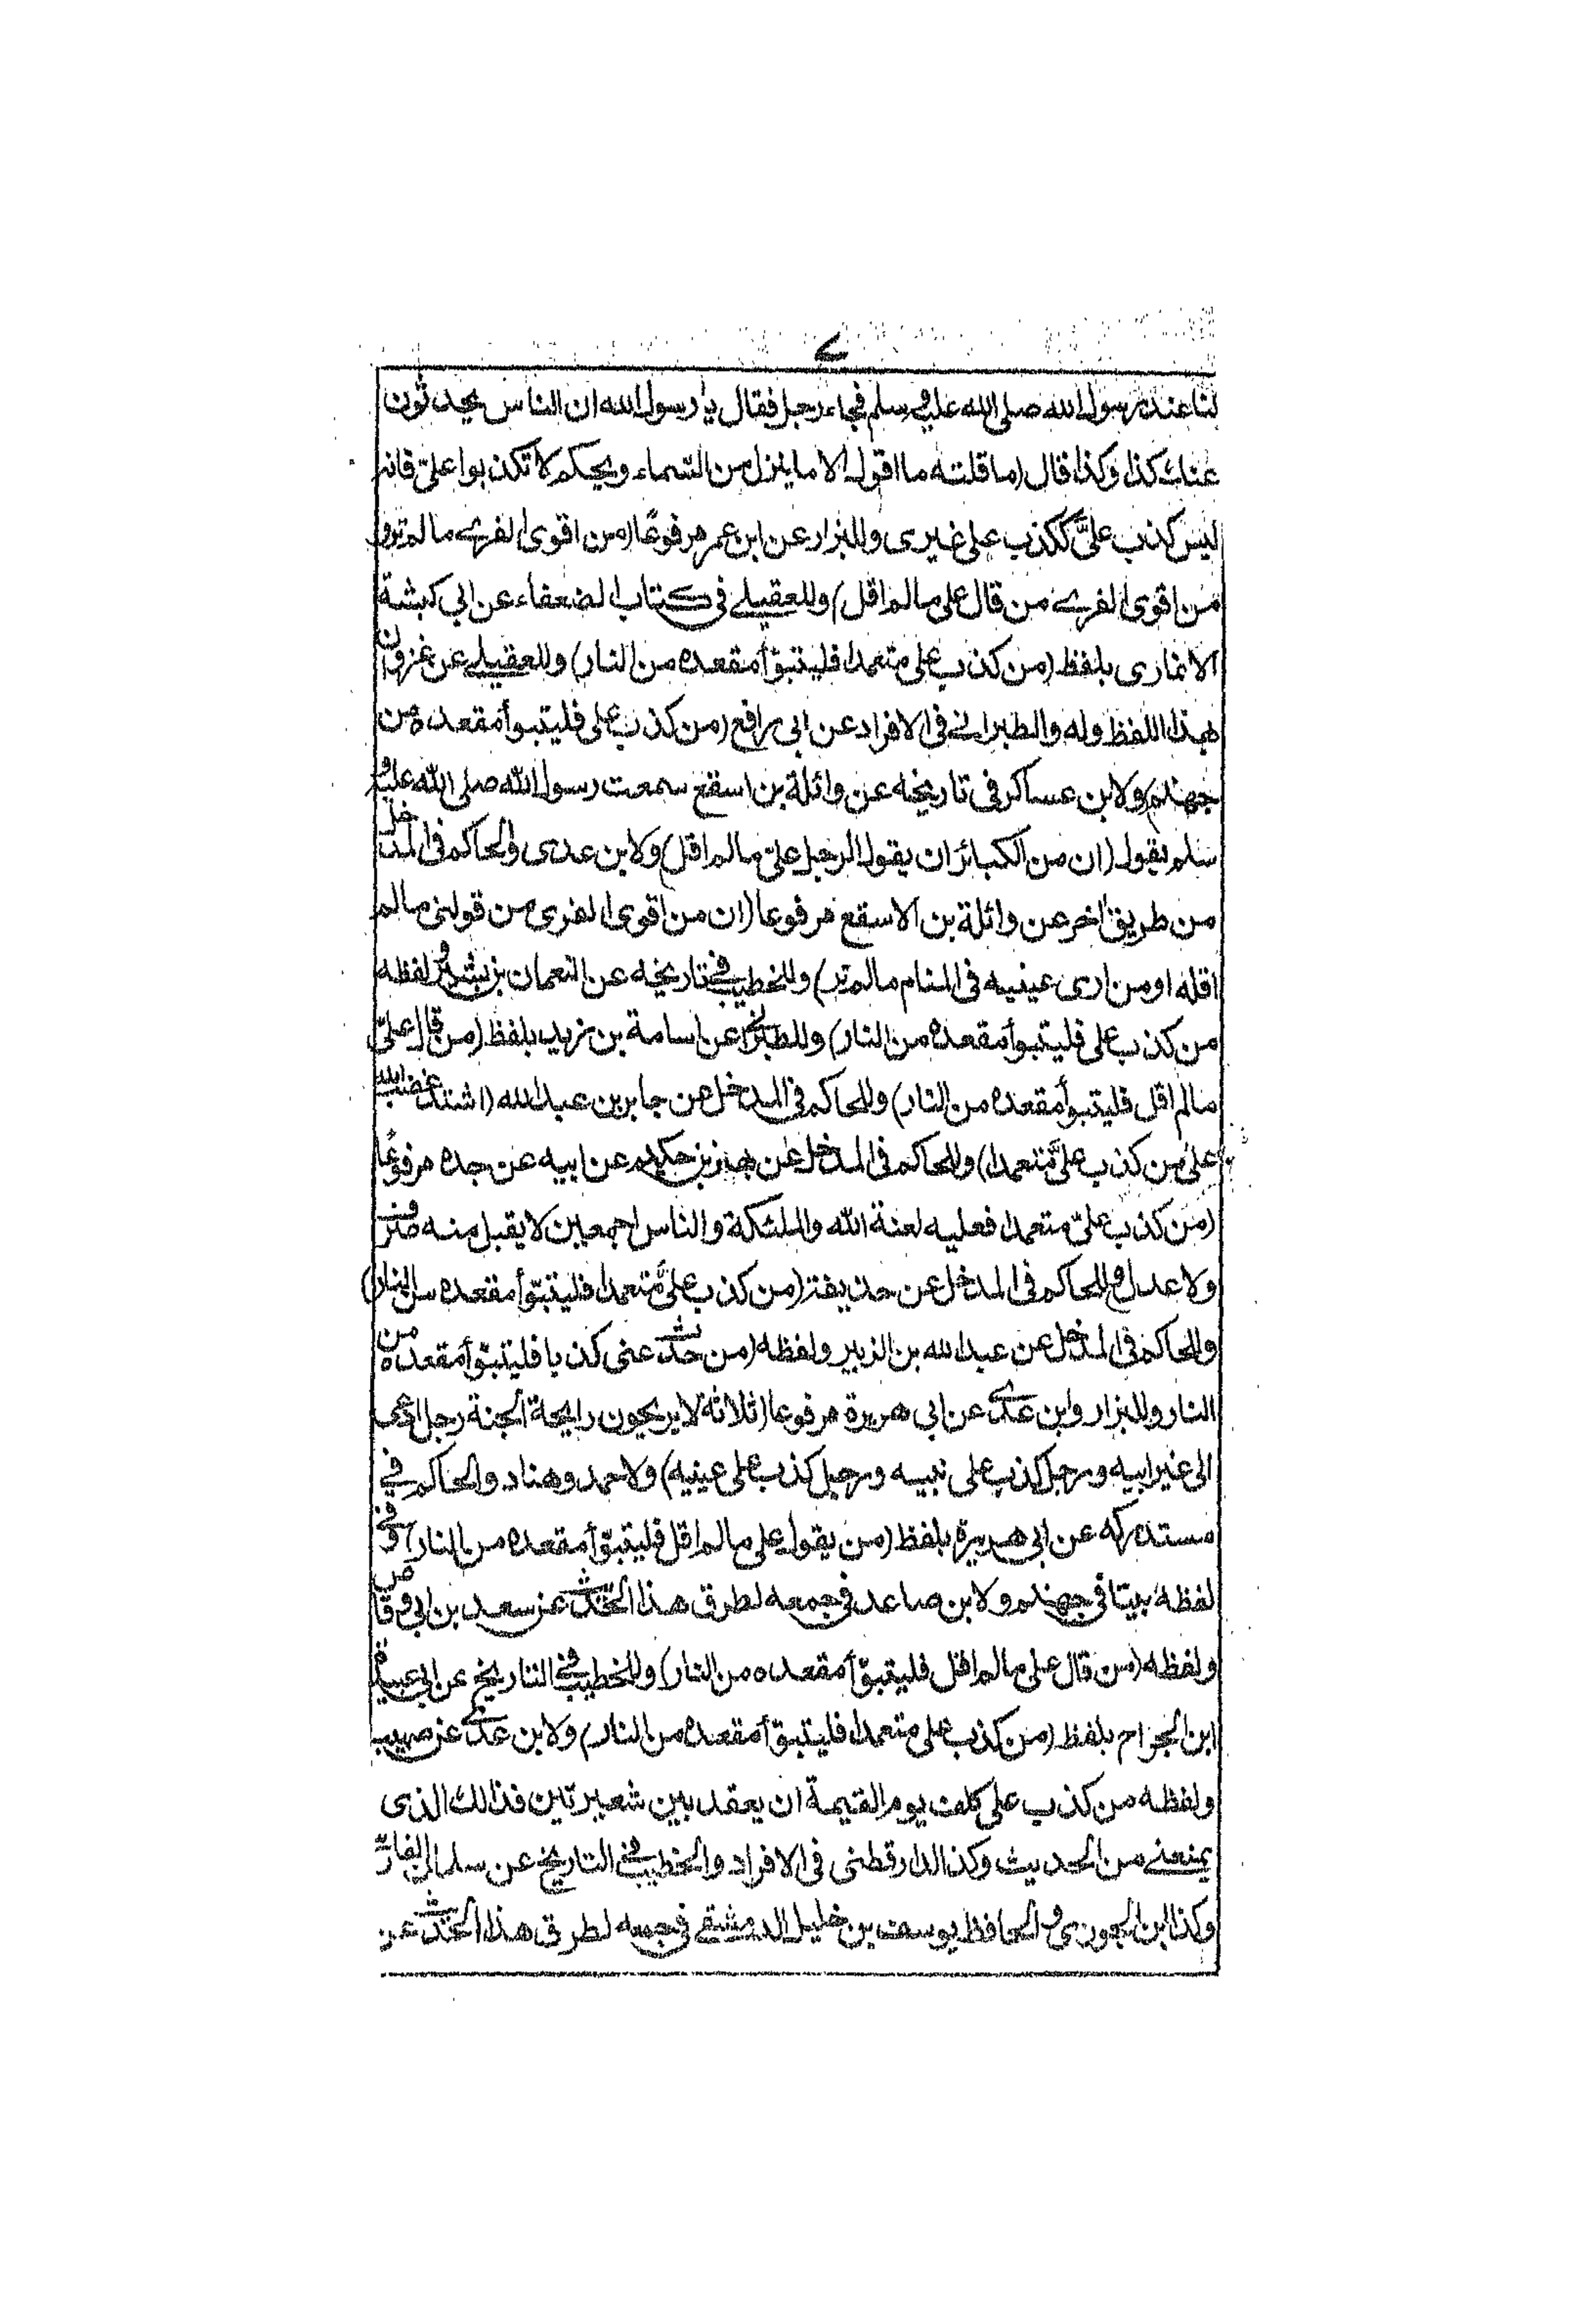 كنا عند رسول الله صلى الله عليه و سلم فجاء رجل فقال يا رسول الله ان الناس يحدثون
عنك كذا وكذا قال (ما قلته ما اقول الا ما ينزل من السماء ويحكم لا تكذبوا علىّ فانه
ليس كذب علىَّ ككذب على غيرى وللبزار عن ابن عمر مرفوعًا (من اقوى الفرے ما لم ترو
من اقوى الفرے من قال على ما لم اقل) وللعقيلے فى كتاب الضعفاء عن ابي كبشة
الانمارى بلفظ (من كذب على متعمدا فليتبوّأ مقعده من النار) وللعقيلے عن غزوان
بهذا اللفظ وله والطبرانے فى الافراد عن ابى رافع (من كذب على فليتبوأ مقعده من
جهنم) ولابن عساكر فى تاريخه عن واثلة بن اسقع سمعت رسول الله صلى الله عليه و
سلم يقول (ان من الكبائر ان يقول الرجل علىّ ما لم اقل) ولابن عدى والحاكم فى المدخل
من طريق اخر عن واثلة بن الاسقع مرفوعا (ان من اقوى الفرى من قولنى ما لم
اقله او من ارى عينيه فى المنام ما لم تر) وللخطيب فے تاريخه عن النعمان بن بشير و لفظه
من كذب على فليتبوأ مقعده من النار) وللطبرانى عن اسامة بن زيد بلفظ (من قال علىّ
ما لم اقل فليتبوأ مقعده من النار) وللحاكم فى المدخل عن جابر بن عبد الله (اشتد غضب الله
على من كذب علىَّ متعمدا) وللحاكم فى المدخل عن بهز بن حكيم عن ابيه عن جده مرفوعًا
(من كذب علىّ متعمدا فعليه لعنة الله والملئكة والناس اجمعين لا يقبل منه صرف
ولا عدل) وللحاكم فى المدخل عن حذيفة (من كذب علىَّ متعمدا فليتبوّأ مقعده من النار)
وللحاكم فى المدخل عن عبد الله بن الزبير ولفظه (من حدث عنى كذبا فليتبوّأ مقعده من
النار وللبزار وابن عدے عن ابى هريرة مرفوعا (ثلاثة لا يريحون رايحة الجنة رجل ادعى
الى غير ابيه ورجل كذب على نبيه ورجل كذب على عينيه) ولاحمد وهناد والحاكم فے
مستدركه عن ابى هريرة بلفظ (من يقول على ما لم اقل فليتبوّأ مقعده من النار) وفے
لفظه بيتا فى جهنم ولابن صاعد فى جمعه لطرق هذا الحديث عن سعد بن ابى وقاص
ولفظه (من قال على ما لم اقل فليتبوّأ مقعده من النار) وللخطيب فے التاريخ عن ابى عبيدة
ابن الجراح بلفظ (من كذب على متعمدا فليتبوّأ مقعده من النار) ولابن عدے عن صهيب
ولفظه من كذب على كلف يوم القيمة ان يعقد بين شعيرتين فذالك الذى
يمنعنے من الحديث وكذا الدارقطنى فى الافراد والخطيب فے التاريخ عن سلمان الفارسى
وكذا ابن الجوزى و الحافظ يوسف بن خليل الدمشقے فى جمعه لطرق هذا الحديث عن